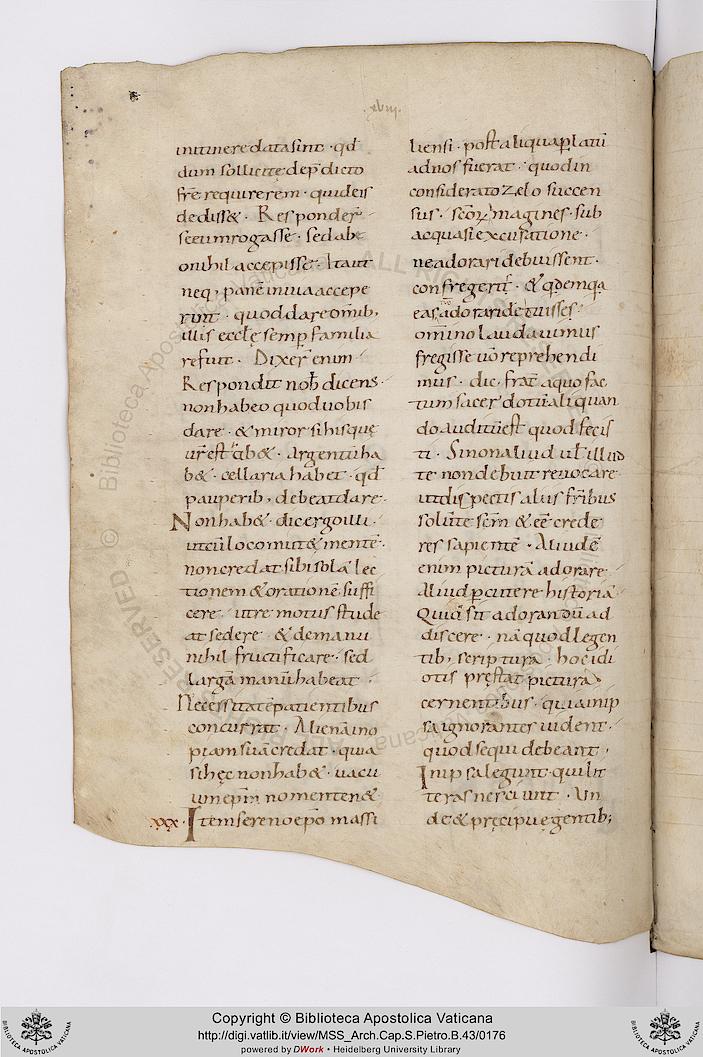 xlviii.
initinere data sint · qd̄
dum sollicite dep̄dicto
fr̄e requirerem · quid eis
dedisset · Responder̄
se eum rogasse · sed ab e
o nihil accepisse · Ita ut
neq; panē in via accepe
runt · quod dare omīb;
illis eccl̄e semp̄ familia
re fuit · Dixer̄ enim
Respondit nob̄ dicens ·
non habeo quod vobis
dare · & miror si hisquę
ur̄ est cib& · argentū ha
b& · cellaria habet · qd̄
pauperib; debeat dare ·
Non hab& · dic ergo illi ·
ut cū loco mut& mentē ·
non credat sibi solā lec
tionem & orationē suffi
cere · ut remotus stude
at sedere · & de manu
nihil fructificare · sed
largā manū habeat ·
Necessitatē patientibus
concurrat · Alienā ino
piam suā credat · quia
si hęc non hab& · vacu
um ep̄m nomen ten&
xxx · Item sereno ep̄o massi
liensi · post aliqua p̄latū
ad nos fuerat · quod in
considerato zelo succen
sus · scōrꝝ imagines · sub
ac quasi excusatione ·
ne adorari debuissent ·
confregerit̄ · & q̄dem q̄a
eas adorari vetuisses ·
om̄ino laudavimus
fregisse vō reprehendi
mus · dic · frat̄ a quo fac
tum sacerdotū aliquan
do auditū est quod fecis
ti · Si non aliud vl̄ illud
te non debuit revocare
ut dispectis aliis fr̄ibus
solūte sc̄m & eē crede
res sapientē · Aliud ē
enim picturā adorare ·
Aliud p̄cutere historiā ·
Quid sit adorandū ad
discere · nā quod legen
tib; scriptura · hoc idi
otis pręstat pictura
cernentibus · quia in ip
sa ignorantes vident ·
quod sequi debeant ·
In ip̄sa legunt qui lit
teras nesciunt · Un
de & pręcipuę gentib;
Copyright © Biblioteca Apostolica Vaticana
http://digi.vatlib.it/view/MSS_Arch.Cap.S.Pietro.B.43/0176
powered by DWork • Heidelberg University Library